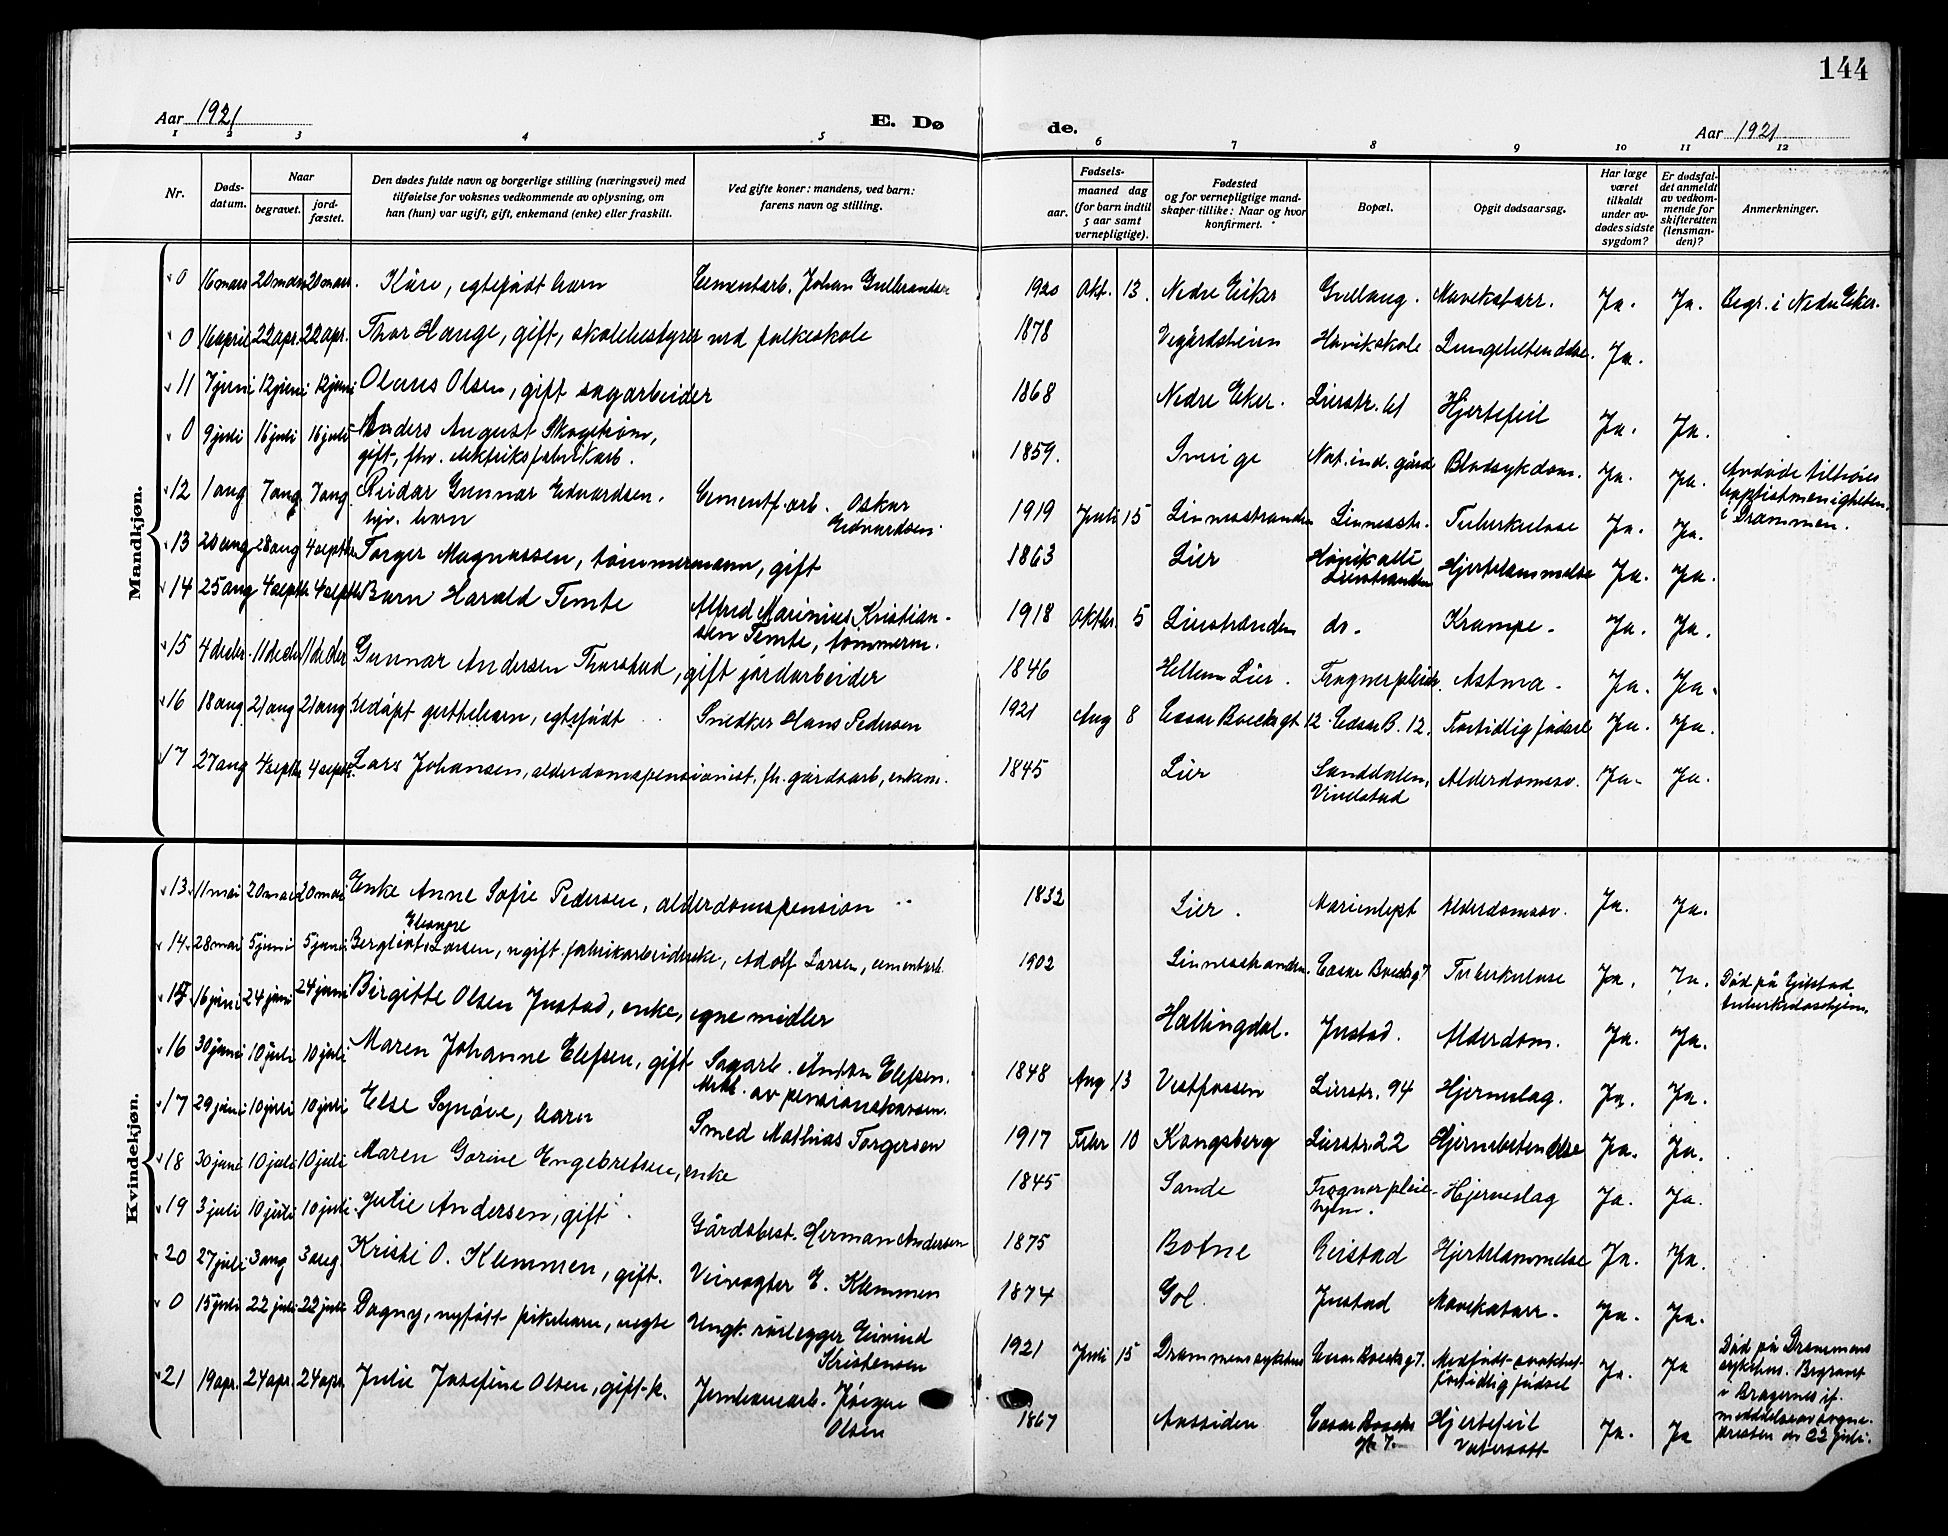 144
Aar 1921 E. Dø de. Aar 1921
1 2 3 4 5 6 7 8 9 10 11 12
Nr. Døds-datum. Naar begravet. jord-fæstet. Den dødes fulde navn og borgerlige stilling (næringsvei) med tilføielse for voksnes vedkommende av oplysning, om han (hun) var ugift, gift, enkemand (enke) eller fraskilt. Ved gifte koner: mandens, ved barn: farens navn og stilling. Fødsels- aar. maaned dag (for barn indtil 5 aar samt vernepligtige). Fødested og for vernepligtige mandskaper tillike: Naar og hvor konfirmert. Bopæl. Opgit dødsaarsag. Har læge været tilkaldt under avdødes sidste sygdom? Er dødsfaldet anmeldt av vedkommende for skifteretten (lensmanden)? Anmerkninger.
Mandkjøn.
0 16 mars 20 mars 20 mars Kåre, egtefødt barn Cementarb. Johan Gulbrandsen 1920 Okt. 13. Nedre Eiker Gullaug. Mavekatarr. Ja. Ja. Begr. i Nedre Eiker.
0 16 april 22 apr. 22 apr. Thor Hauge, gift, skolebestyrer ved folkeskole 1878 Vegårdsheien Høvikskole Lungebetendelse. Ja.
11 7 juni 12 juni 12 juni Olaus Olsen, gift sagarbeider 1868 Nedre Eker. Lierstr. 61 Hjertefeil Ja. Ja.
0 9 juli 16 juli 16 juli Anders August Skogstrøm, gift, fhv. elektriskfabrikarb. 1859. Sverige Nat. ind. gård Blodsykdom. Ja. Ja. Avdøde tilhøres baptistmenigheten i Drammen.
12 1 aug 7 aug 7 aug Reidar Gunnar Edvardsen. hjv. barn Cementf. arb. Oskar Edvardsen. 1919 Juli 15 Linnesstranden Linnesstr. Tuberkulose Ja. Ja.
13 20 aug 28 aug 4 septbr Torger Magnussen, tømmermann, gift 1863 Lier Høvik alle Lierstranden Hjertelammelse Ja. Ja.
14 25 aug 4 septbr 4 septbr Barn Harald Temte Alfred Marinius Kristiansen Temte, tømmerm. 1918 Oktbr. 5 Lierstranden do. Krampe. Ja. Ja.
15 4 desbr. 11 decbr 11 decbr Gunnar Andersen Thorstad, gift jordarbeider 1846 Hellum Lier. Frognerpleiehj. Astma. Ja. Ja.
16 18 aug 21 aug 21 aug Udøpt guttebarn, egtefødt Snedker Hans Pedersen 1921 Aug 8 Cesar Boecksgt. 12 Cesar B. 12. Fortidlig fødsel Ja. Ja.
17 27 aug 4 septbr 4 septbr. Lars Johansen, alderdomspensionist, fh. gårdsarb, enkem. 1845 Lier Sanddalen, Vivelstad Alderdomssv. Ja. Ja.
Kvindekjøn.
13 11 mai 20 mai 20 mai Enke Anne Sofie Pedersen, alderdomspension 1832 Lier. Marienlyst Alderdomssv. Ja. Ja.
14. 28 mai 5 juni 5 juni Bergliot Eleonore Larsen, ugift fabrikarbeiderske, Adolf Larsen, cementarb. 1902 Linnesstranden. Cesar Boecksg 7 Tuberkulose Ja. Ja. Død på Gilstad tuberkulosehjem.
15 16 juni 24 juni 24 juni Birgitte Olsen Justad, enke, egne midler Hallingdal. Justad. Alderdom. Ja. Ja.
16 30 juni 10 juli 10 juli Maren Johanne Elefsen, gift Sagarb. Anton Elefsen. Medl. av pensionskassen. 1848 Aug 13 Vestfossen Lierstr. 94 Hjerneslag. Ja. Ja.
17 29 juni 10 juli 10 juli Else Synøve, barn Smed Mathias Torgersen 1917 Febr 10 Kongsberg Lierstr. 22 Hjernebetendelse Ja. Ja.
18 30 juni 10 juli 10 juli Maren Gorine Engebretsen, enke 1845 Sande Frognerpleiehjem. Hjerneslag Ja. Ja.
19 3 juli 10 juli 10 juli Julie Andersen, gift. Gårdsbest. Herman Andersen 1875 Botne Reistad Hjertelammelse Ja. Ja.
20 27 juli 3 aug 3 aug. Kristi O. Klemmen, gift. Veivogter E. Klemmen 1874 Gol. Justad Mavekatarr. Ja. Ja.
0 15 juli 22 juli 22 juli Dagny, nyføtt pikebarn, uegte Ungk. rørlegger Eivind Kristensen 1921 Juli 15 Drammens sykehus Cesar Boecksg 7. Medfødt svakhet fortidlig fødsel Ja. Ja Død på Drammens sykehus. Begravet i Bragernes if. meddelelse av sognepresten ds 22 juli.
21 19 apr. 24 apr. 24 apr. Julie Josefine Olsen, gift k. Jernbanearb. Jørgen Olsen 1867 Aassiden Cesar Boecks gt. 7. Hjertefeil Vatersott Ja. Ja